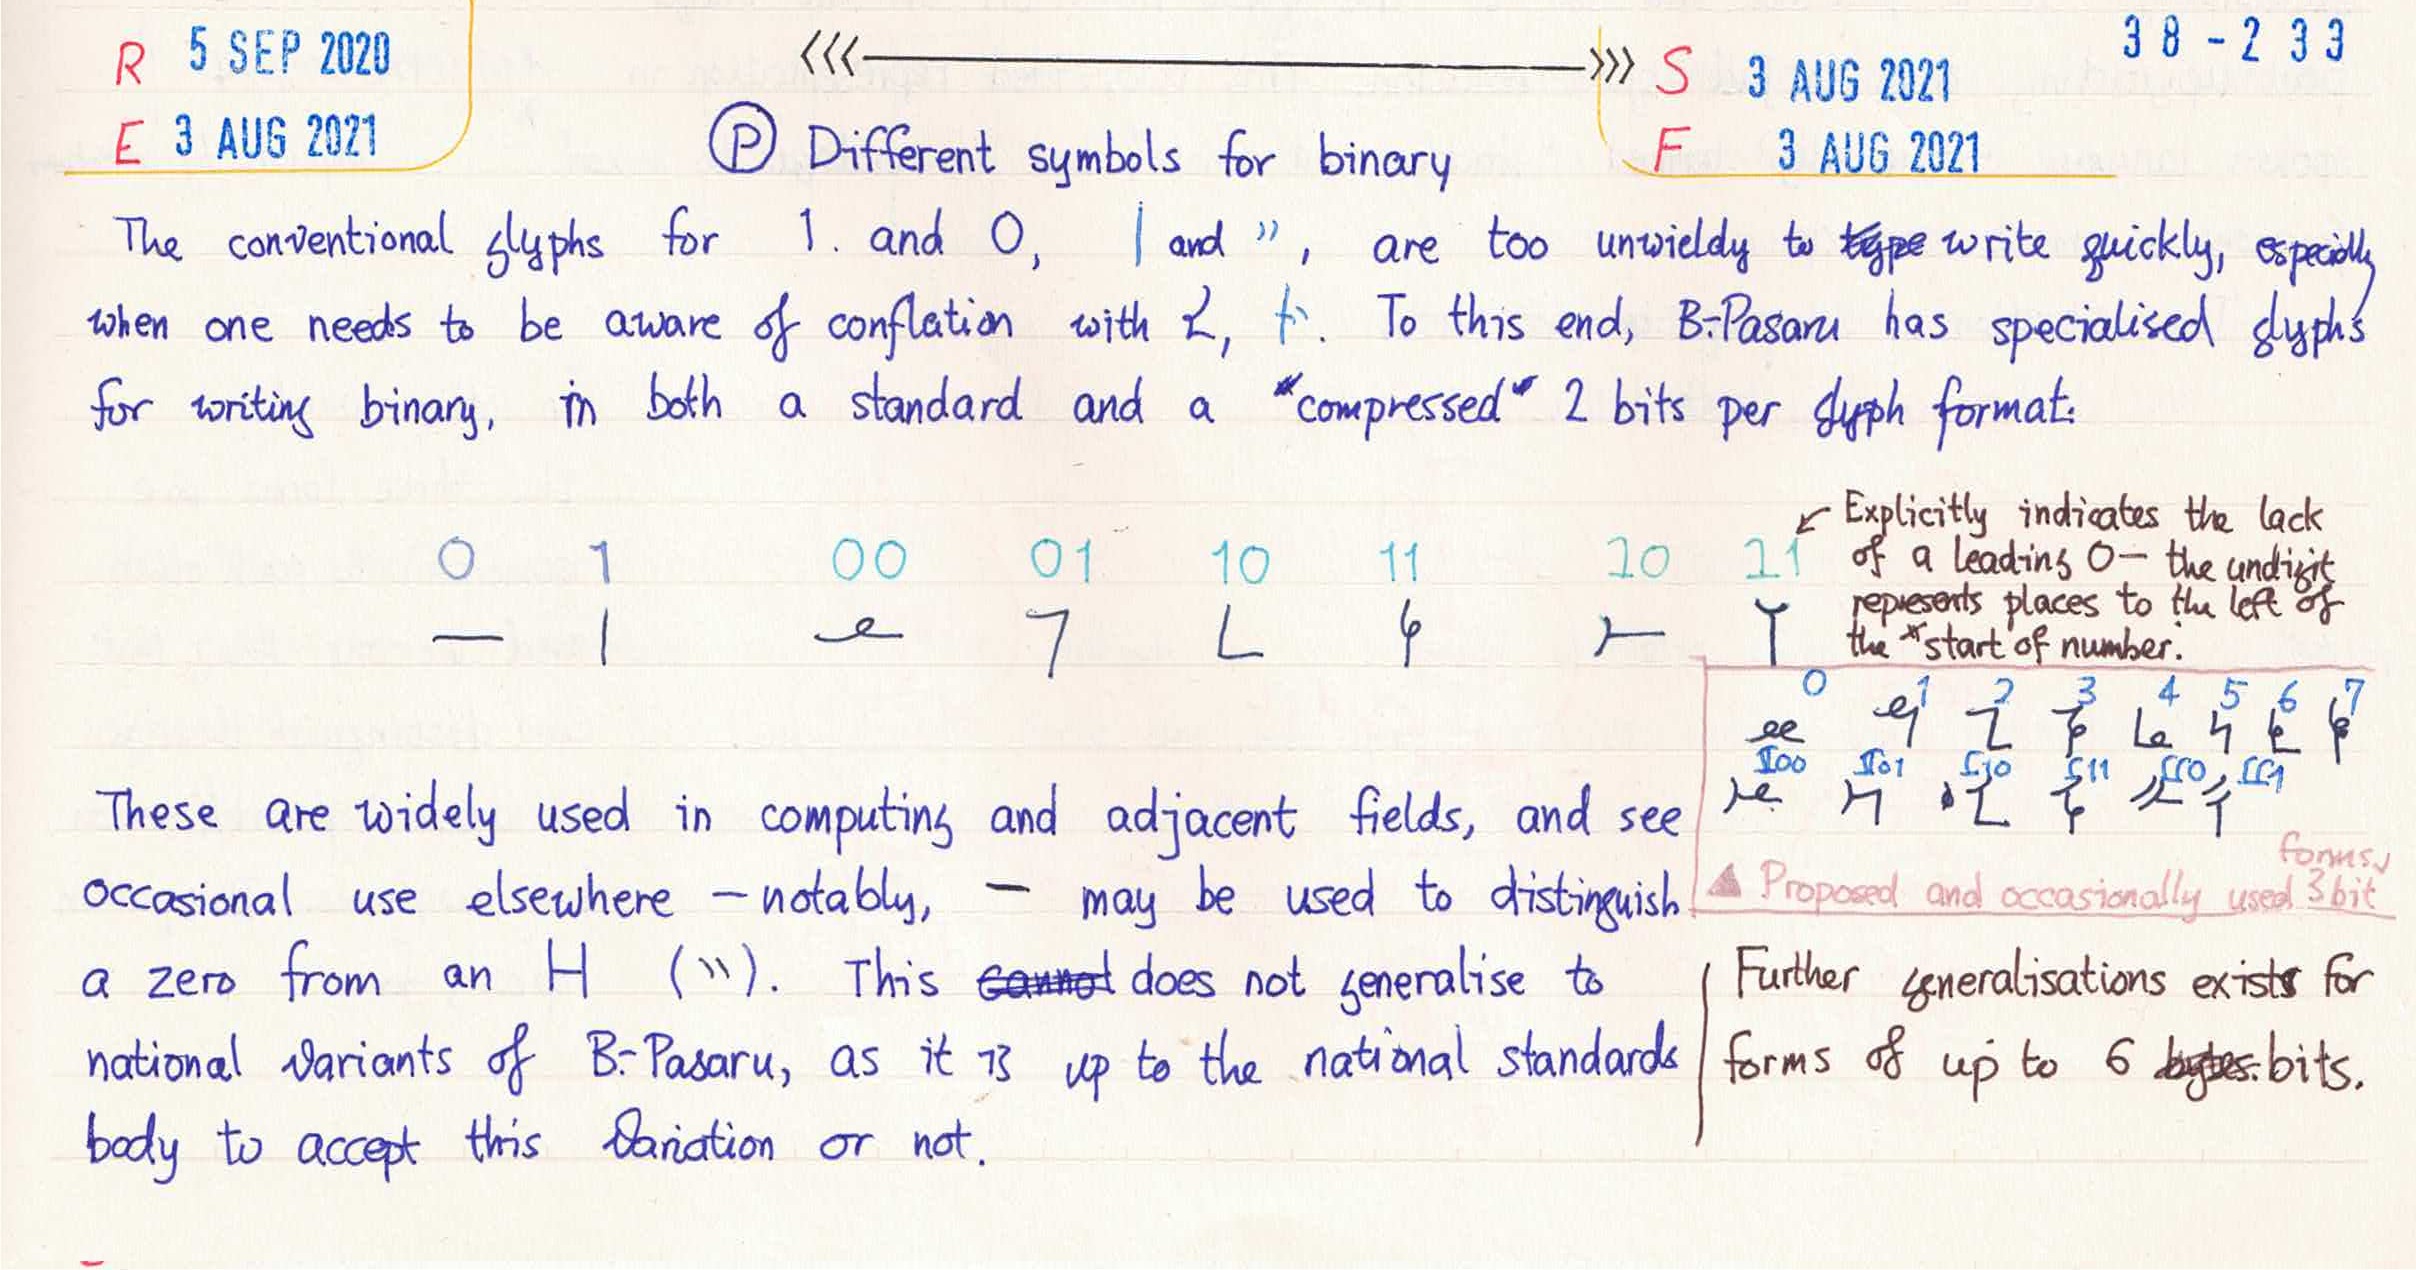 R 5 SEP 2020
E 3 AUG 2021
S 3 AUG 2021
F 3 AUG 2021
38-233
Ⓟ Different symbols for binary
The conventional glyphs for 1. and 0, | and », are too unwieldy to type write quickly, especially
when one needs to be aware of conflation with To this end, B:-Pasaru has specialised glyphs
for writing binary, in both a standard and a "compressed" 2 bits per glyph format:
0 1 00 01 10 11 10 11
Explicitly indicates the lack
of a leading 0 — the undigit
represents places to the left of
the "start of number.
0 1 2 3 4 5 6 7
These are widely used in computing and adjacent fields, and see
occasional use elsewhere — notably, — may be used to distinguish
a zero from an H (»). This cannot does not generalise to
national variants of B:-Pasaru, as it is up to the national standards
body to accept this variation or not.
▲ Proposed and occasionally used 3 bit forms
Further generalisations exists for
forms of up to 6 bytes. bits.